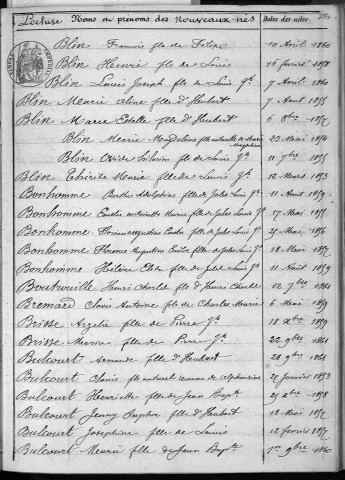 Lecluse Noms et prénoms des Nouveaux nés Dates des actes
Blin François fls de Isidore 10 Avril 1860
Blin Henri fls de Louis 16 février 1858
Blin Louis Joseph fls de Louis 7 Avril 1860
Blin Marie Aline fille d'Hubert 7 Avril 1855
Blin Marie Estelle fille d'Hubert 6 1857
Blin Marie Magdeleine fille naturelle de Marie Magdeleine 23 Mai 1854
Blin Ovide Silvain fls de Louis 11 7bre 1855
Blin Thérèse Marie fille de Louis 12 Mars 1853
Bonhomme Berthe Adolphine fille de Jules Louis 11 Août 1859
Bonhomme Emélie Antoinette Marie fille de Jules Louis 17 Mai 1855
Bonhomme Florine Augustine Emélie fille de Jules Louis 21 Mai 1856
Bonhomme Florence Augustine Emélie fille de Jules Louis 18 Mai 1857
Bonhomme Hélène Elise fille de Jules Louis 11 Août 1859
Boutrouille Henri Charles fls d'Henri Charles 12 7bre 1861
Bremard Clovis Antoine fls de Charles Marie 6 Mai 1859
Brisse Azélie fille de Pierre 18 Xbre 1859
Brisse Marie fille de Pierre 22 9bre 1861
Bulcourt Armande fille d'Hubert 28 9bre 1861
Bulcourt Clovis fls naturel reconnu de Alphonsine 21 Janvier 1853
Bulcourt Henriette fille de Jean Bapte 21 1858
Bulcourt Jenny Sophie fille d'Hubert 18 Mai 1857
Bulcourt Joséphine fille de Louis 12 février 1857
Bulcourt Marie fille de Jean Bapte 1er 9bre 1860